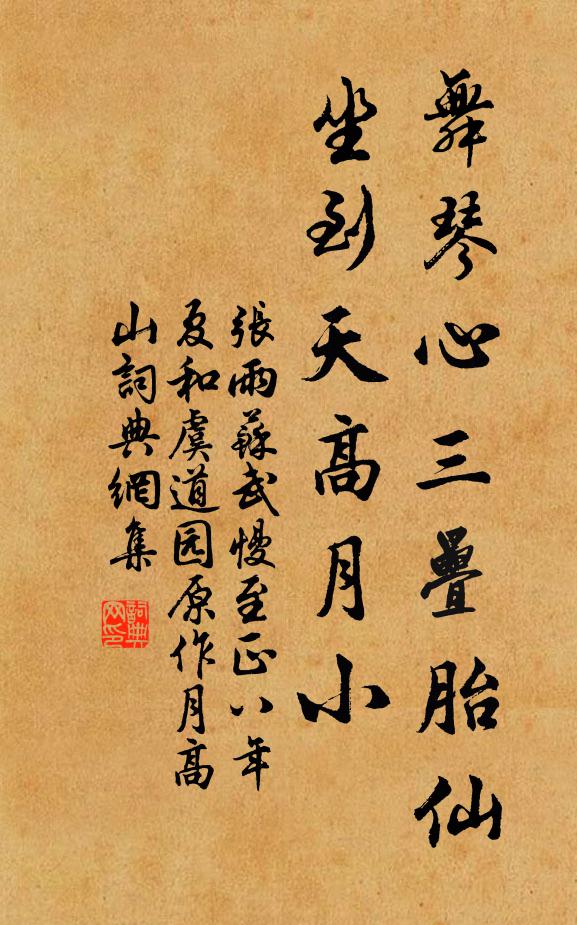 舞琴心三疊胎仙
坐到天高月小
張雨蘇武慢至正八年
夏和虞道园原作月高
山詞典網集
詞典
网印